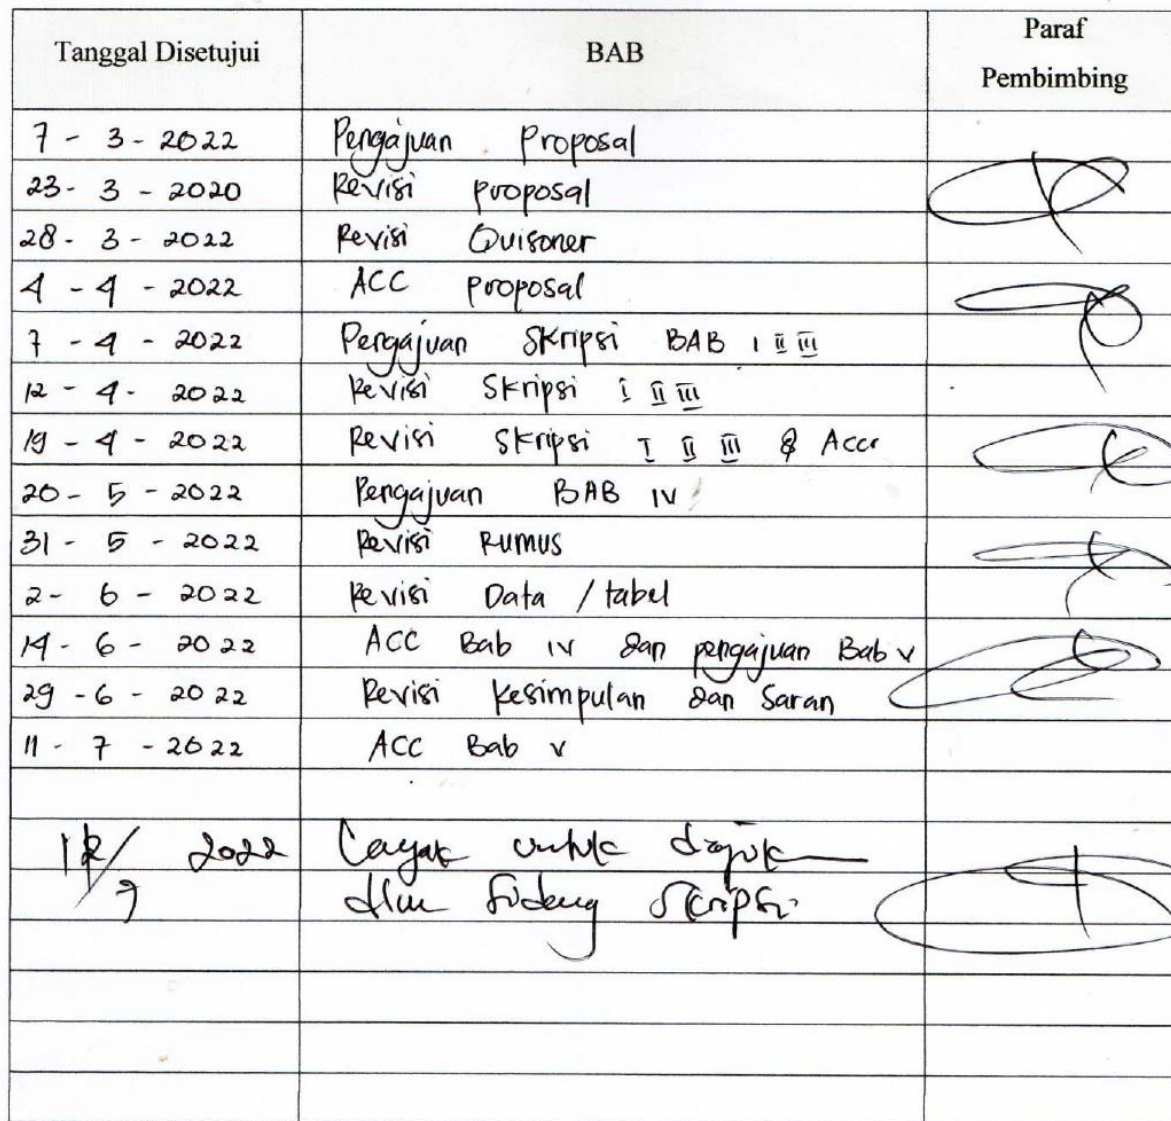 Tanggal Disetujui BAB Paraf
Pembimbing
7 - 3 - 2022 Pengajuan Proposal
23 - 3 - 2020 Revisi proposal
28 - 3 - 2022 Revisi Quisoner
4 - 4 - 2022 ACC proposal
7 - 4 - 2022 Pengajuan Skripsi BAB I II III
12 - 4 - 2022 Revisi Skripsi I II III
19 - 4 - 2022 Revisi Skripsi I II III & Acc
20 - 5 - 2022 Pengajuan BAB IV
31 - 5 - 2022 Revisi Rumus
2 - 6 - 2022 Revisi Data / tabel
14 - 6 - 2022 ACC Bab IV dan pengajuan Bab V
29 - 6 - 2022 Revisi Kesimpulan dan Saran
11 - 7 - 2022 ACC Bab V
12/7 2022 Layak untuk diajuk
dlm Sidang Skripsi